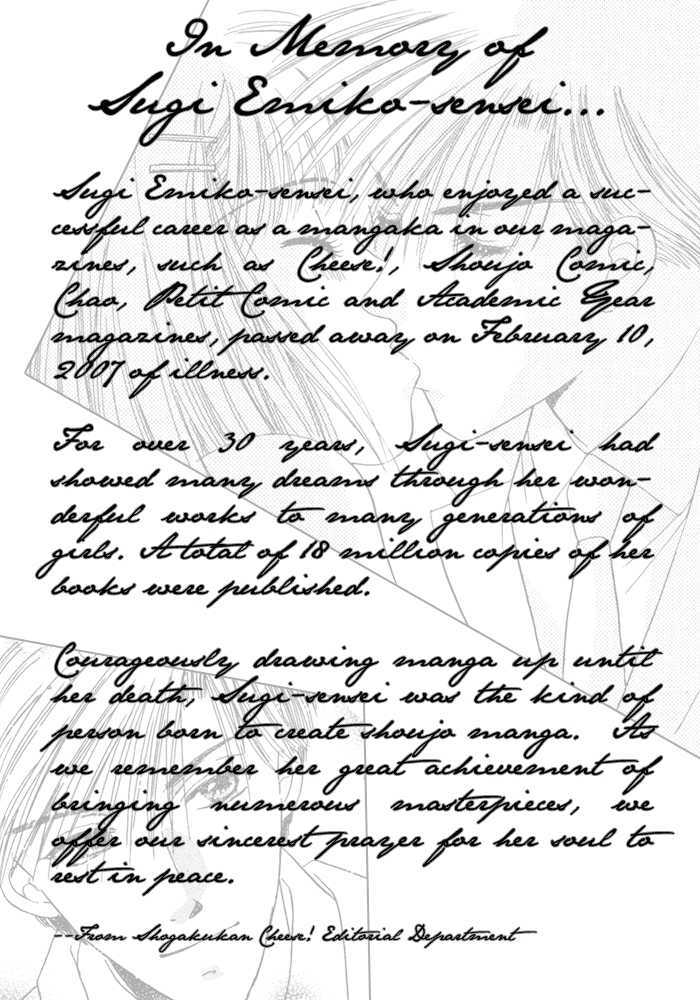 In Memory of
Sugi Emiko-sensei...
Sugi Emiko-sensei, who enjoyed a suc-
cessful career as a mangaka in our maga-
zines, such as Cheese!, Shoujo Comic,
Chao, Petit Comic and Academic Gear
magazines, passed away on February 10,
2007 of illness.
For over 30 years, Sugi-sensei had
showed many dreams through her won-
derful works to many generations of
girls. A total of 18 million copies of her
books were published.
Courageously drawing manga up until
her death, Sugi-sensei was the kind of
person born to create shoujo manga. As
we remember her great achievement of
bringing numerous masterpieces, we
offer our sincerest prayer for her soul to
rest in peace.
--From Shogakukan Cheese! Editorial Department